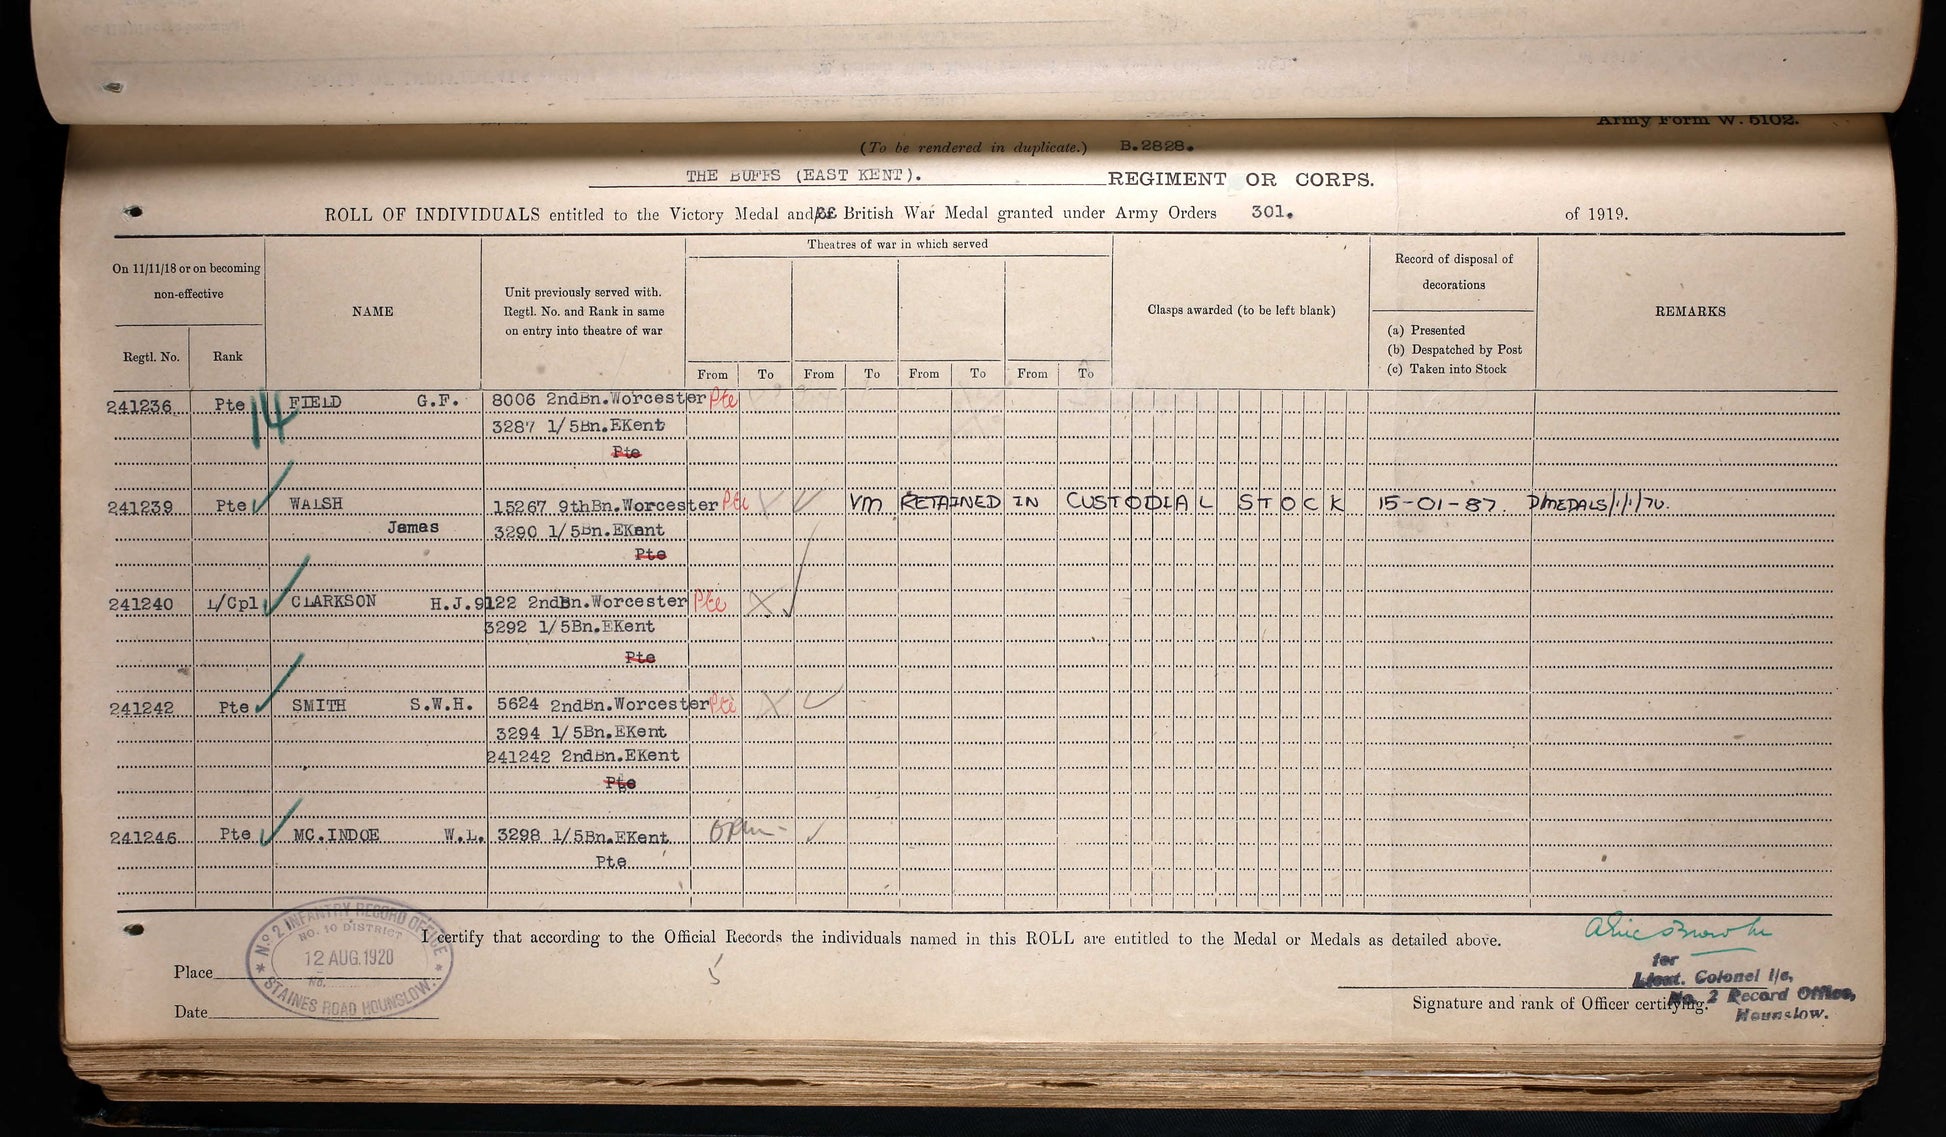 Army Form W. 5102.
(To be rendered in duplicate.) B.2828.
THE BUFFS (EAST KENT). REGIMENT OR CORPS.
ROLL OF INDIVIDUALS entitled to the Victory Medal and/or British War Medal granted under Army Orders 301. of 1919.
On 11/11/18 or on becoming non-effective
Regtl. No.
Rank
NAME
Unit previously served with. Regtl. No. and Rank in same on entry into theatre of war
Theatres of war in which served
From To From To From To From To
Clasps awarded (to be left blank)
Record of disposal of decorations
(a) Presented
(b) Despatched by Post
(c) Taken into Stock
REMARKS
241236 Pte 14 FIELD G.F. 8006 2ndBn.Worcester Pte
3287 1/5Bn.EKent
Pte
241239 Pte WALSH 15267 9thBn.Worcester Pte VM RETAINED IN CUSTODIAL STOCK 15-01-87. D/MEDALS/1/1/70.
James 3290 1/5Bn.EKent
Pte
241240 L/Cpl CLARKSON H.J. 9122 2ndBn.Worcester Pte
3292 1/5Bn.EKent
Pte
241242 Pte SMITH S.W.H. 5624 2ndBn.Worcester Pte
3294 1/5Bn.EKent
241242 2ndBn.EKent
Pte
241246 Pte MC.INDOE W.L. 3298 1/5Bn.EKent
Pte
I certify that according to the Official Records the individuals named in this ROLL are entitled to the Medal or Medals as detailed above.
No 2 INFANTRY RECORD OFFICE
NO. 10 DISTRICT
12 AUG. 1920
No.
STAINES ROAD HOUNSLOW.
Place
Date
for
Lieut. Colonel I/c,
No. 2 Record Office,
Hounslow.
Signature and rank of Officer certifying.